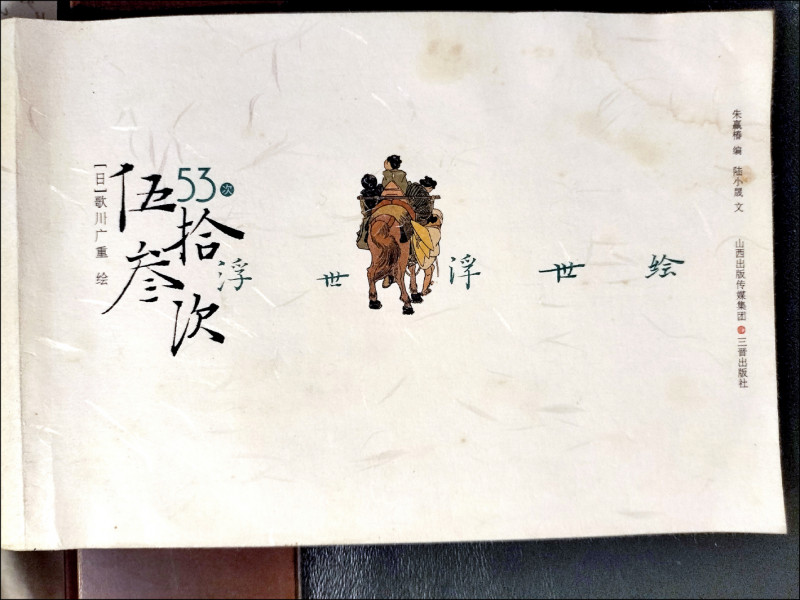 [日]歌川广重 绘
伍拾叁次
53次
浮世浮世绘
朱赢椿 编 陆小晟 文
山西出版传媒集团 三晋出版社